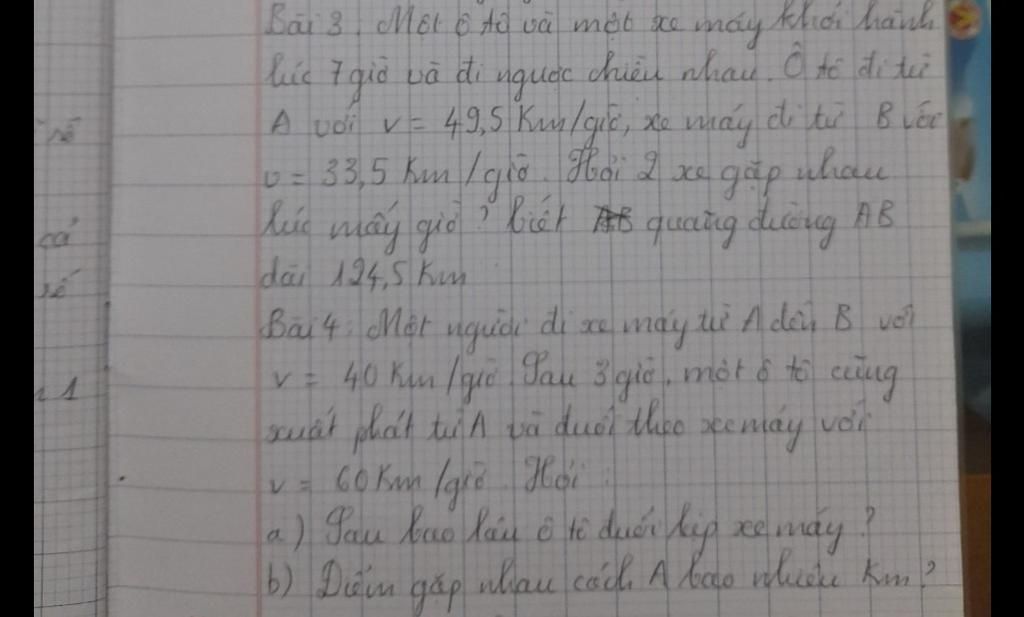 Bài 3. Một ô tô và một xe máy khởi hành
lúc 7 giờ và đi ngược chiều nhau. Ô tô đi từ
A với v = 49,5 Km/giờ, xe máy đi từ B với
v = 33,5 Km/giờ. Hỏi 2 xe gặp nhau
lúc mấy giờ? biết quãng đường AB
dài 124,5 Km
Bài 4: Một người đi xe máy từ A đến B với
v = 40 Km/giờ. Sau 3 giờ, một ô tô cũng
xuất phát từ A và đuổi theo xe máy với
v = 60 Km/giờ. Hỏi:
a) Sau bao lâu ô tô đuổi kịp xe máy?
b) Điểm gặp nhau cách A bao nhiêu Km?
số
cá
số
1